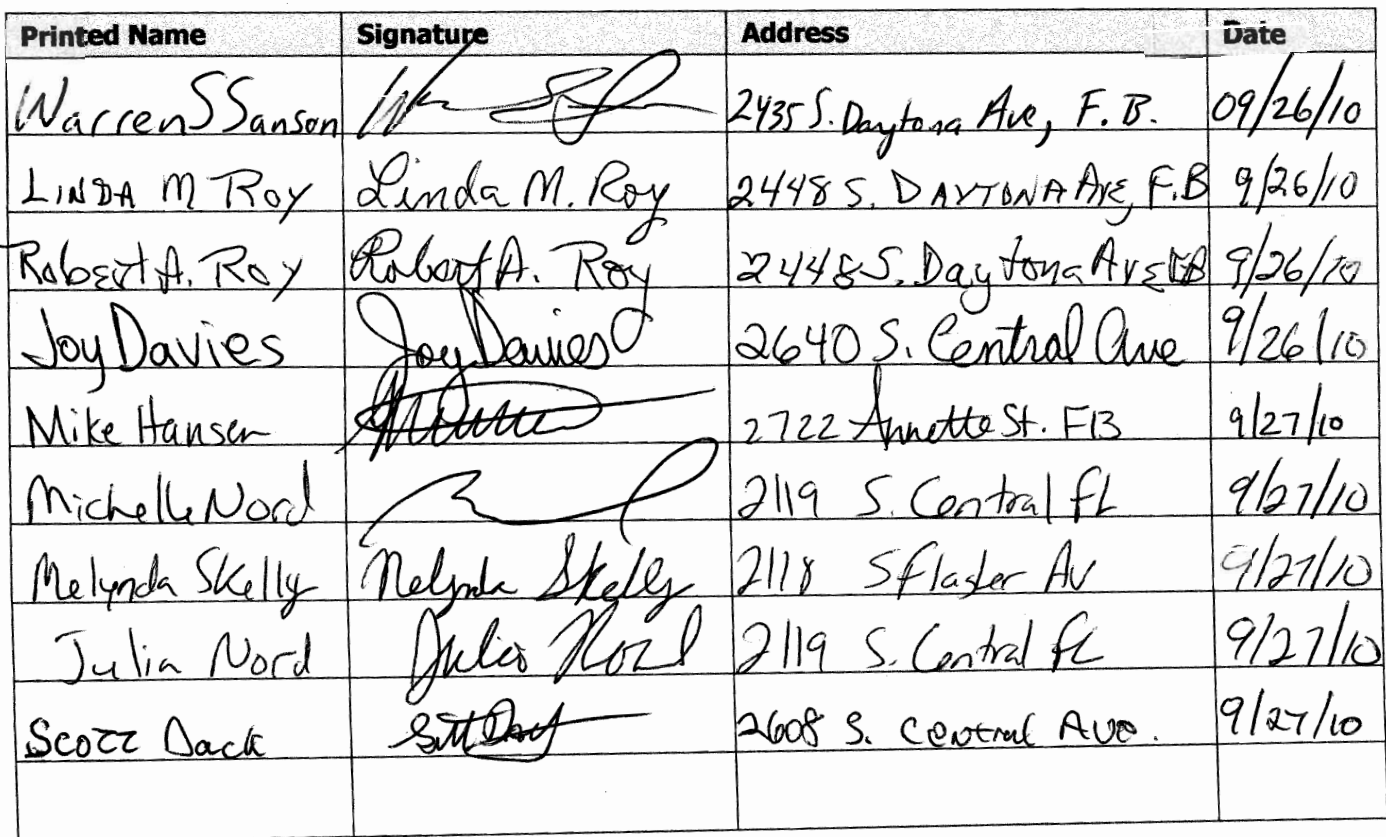 Printed Name Signature Address Date
Warren S Sanson 2435 S. Daytona Ave, F.B. 09/26/10
LINDA M ROY Linda M. Roy 2448 S. DAYTONA AVE, F.B 9/26/10
Robert A. Roy Robert A. Roy 2448 S. Daytona Ave FB 9/26/10
Joy Davies Joy Davies 2640 S. Central Ave 9/26/10
Mike Hansen 2722 Annette St. FB 9/27/10
Michelle Nord 2119 S. Central fL 9/27/10
Melynda Skelly Melynda Skelly 2118 S flagler Av 9/27/10
Julia Nord Julia Nord 2119 S. Central fL 9/27/10
Scott Dack Scott Dack 2608 S. Central Ave. 9/27/10